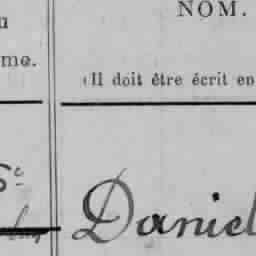 u
NOM.
me.
(Il doit être écrit en
Sᵉ
Daniel